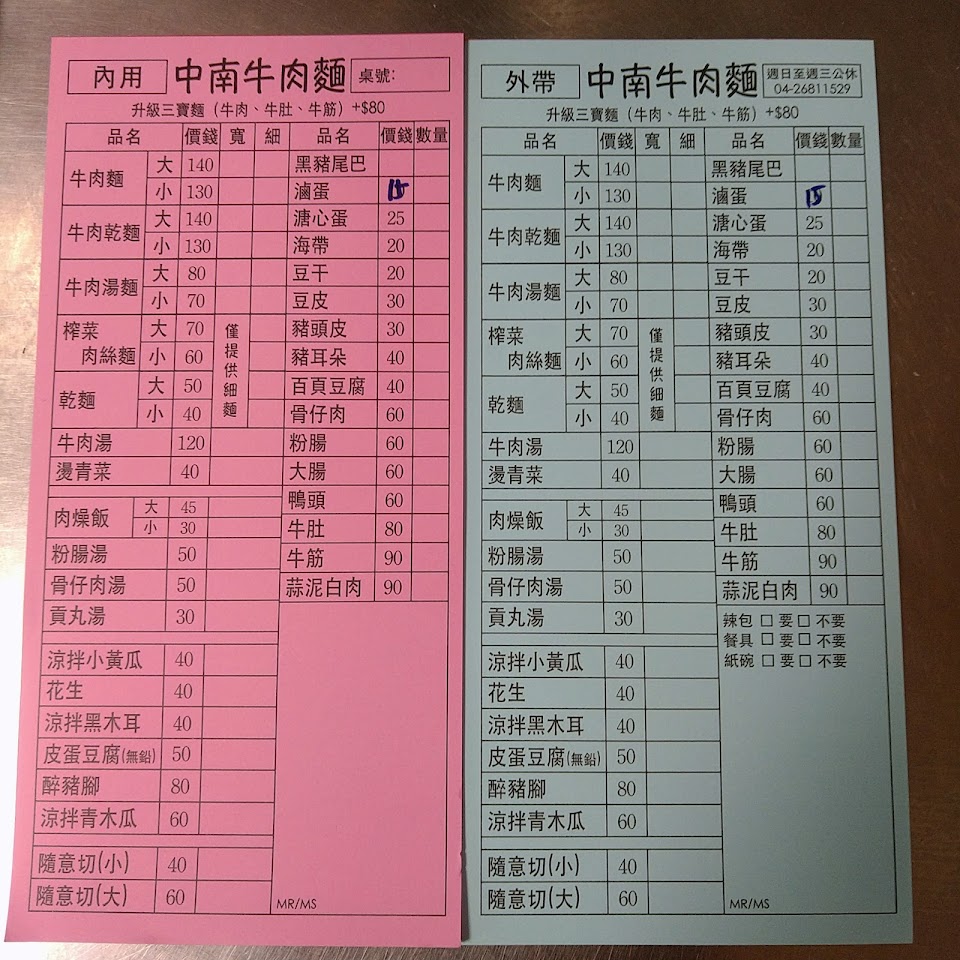 內用 中南牛肉麵 桌號:
升級三寶麵 (牛肉、牛肚、牛筋) +$80
品名 價錢 寬 細 品名 價錢 數量
牛肉麵 大 140 黑豬尾巴
小 130 滷蛋 15
牛肉乾麵 大 140 溏心蛋 25
小 130 海帶 20
牛肉湯麵 大 80 豆干 20
小 70 豆皮 30
榨菜肉絲麵 大 70 僅提供細麵 豬頭皮 30
小 60 豬耳朵 40
乾麵 大 50 百頁豆腐 40
小 40 骨仔肉 60
牛肉湯 120 粉腸 60
燙青菜 40 大腸 60
鴨頭 60
肉燥飯 大 45
小 30 牛肚 80
粉腸湯 50 牛筋 90
骨仔肉湯 50 蒜泥白肉 90
貢丸湯 30
涼拌小黃瓜 40
花生 40
涼拌黑木耳 40
皮蛋豆腐(無鉛) 50
醉豬腳 80
涼拌青木瓜 60
隨意切(小) 40
隨意切(大) 60
MR/MS
外帶 中南牛肉麵 週日至週三公休
04-26811529
升級三寶麵 (牛肉、牛肚、牛筋) +$80
品名 價錢 寬 細 品名 價錢 數量
牛肉麵 大 140 黑豬尾巴
小 130 滷蛋 15
牛肉乾麵 大 140 溏心蛋 25
小 130 海帶 20
牛肉湯麵 大 80 豆干 20
小 70 豆皮 30
榨菜肉絲麵 大 70 僅提供細麵 豬頭皮 30
小 60 豬耳朵 40
乾麵 大 50 百頁豆腐 40
小 40 骨仔肉 60
牛肉湯 120 粉腸 60
燙青菜 40 大腸 60
鴨頭 60
肉燥飯 大 45
小 30 牛肚 80
粉腸湯 50 牛筋 90
骨仔肉湯 50 蒜泥白肉 90
貢丸湯 30 辣包 □ 要 □ 不要
餐具 □ 要 □ 不要
紙碗 □ 要 □ 不要
涼拌小黃瓜 40
花生 40
涼拌黑木耳 40
皮蛋豆腐(無鉛) 50
醉豬腳 80
涼拌青木瓜 60
隨意切(小) 40
隨意切(大) 60
MR/MS